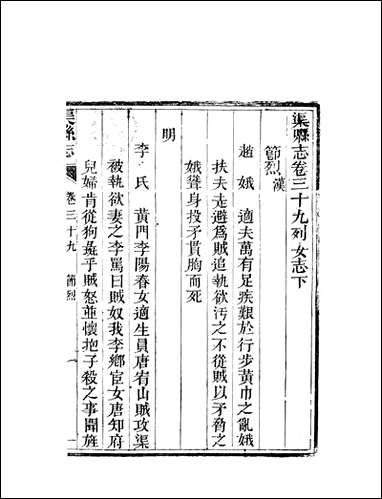 渠縣志卷三十九列女志下
節烈漢
趙娥適夫萬有足疾艱於行步黃巾之亂娥
扶夫走避爲賊追執欲汚之不從賊以矛脅之
娥聳身投矛貫胸而死
明
李氏黃門李陽春女適生員唐宥山賊攻渠
被執欲妻之李罵曰賊奴我李鄉宦女唐知府
兒婦肯從狗彘乎賊怒並懷抱子殺之事聞旌
渠縣志
卷三十九
節烈
一